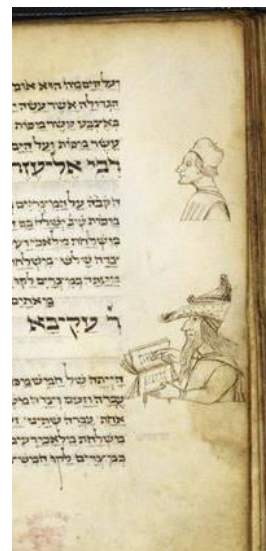 ועל הים מה הוא אומ
הגדולה אשר עשה יי
באצבע
עשר מכות ועל הים
רבי אליעזר
הקבה על המצריים
מכות שנ ישלח בם
משלחת מלאכי רעי
עברה משלחת
במצרים לקו
מאתים
ר עקיבא
הייתה של חמש מכו
עברה וזעם וצרה מש
אחת עברה שתים
משלחת מלאכי רעים
במצרים לקו חמשי